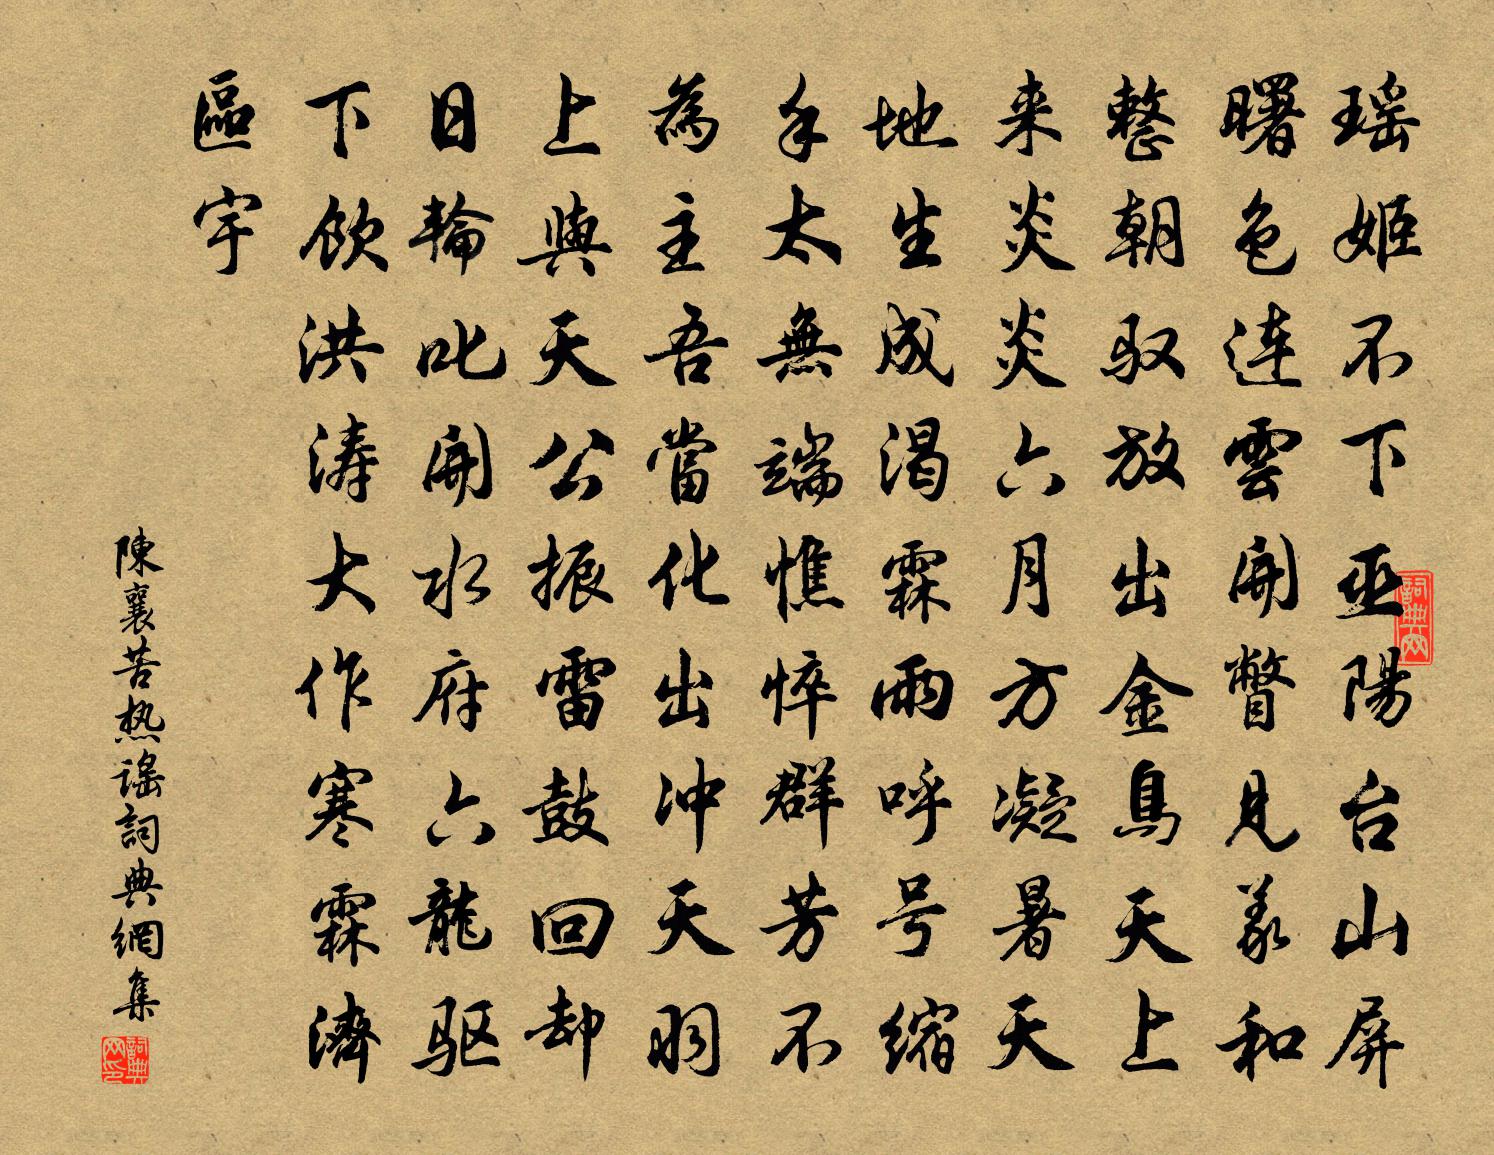 瑶姬不下巫陽台山屏
曙色连雲開瞥見羲和
整朝驭放出金烏天上
来炎炎六月方凝暑天
地生成渴霖雨呼号缩
手太無端憔悴群芳不
為主吾當化出冲天羽
上與天公振雷鼓回却
日輪叱開水府六龍驱
下飲洪涛大作寒霖濟
區宇
陳襄苦热谣詞典網集
詞典网
詞典网印